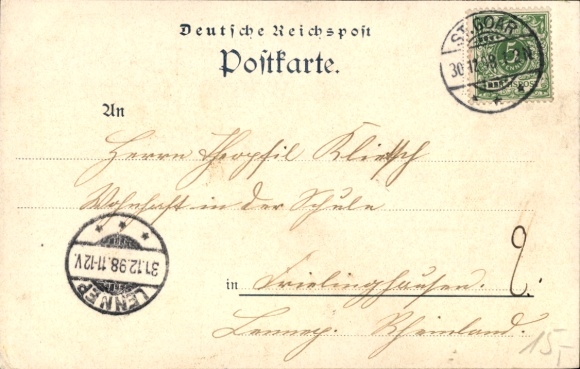 Deutsche Reichspost
Postkarte.
ST. GOAR
30.12.98.
5
An
Herrn Theophil Klietsch
Wohnhaft in der Schule
31.12.98.11-12V.
LENNEP
in Frielinghausen.
Lennep. Rheinland.
15,-